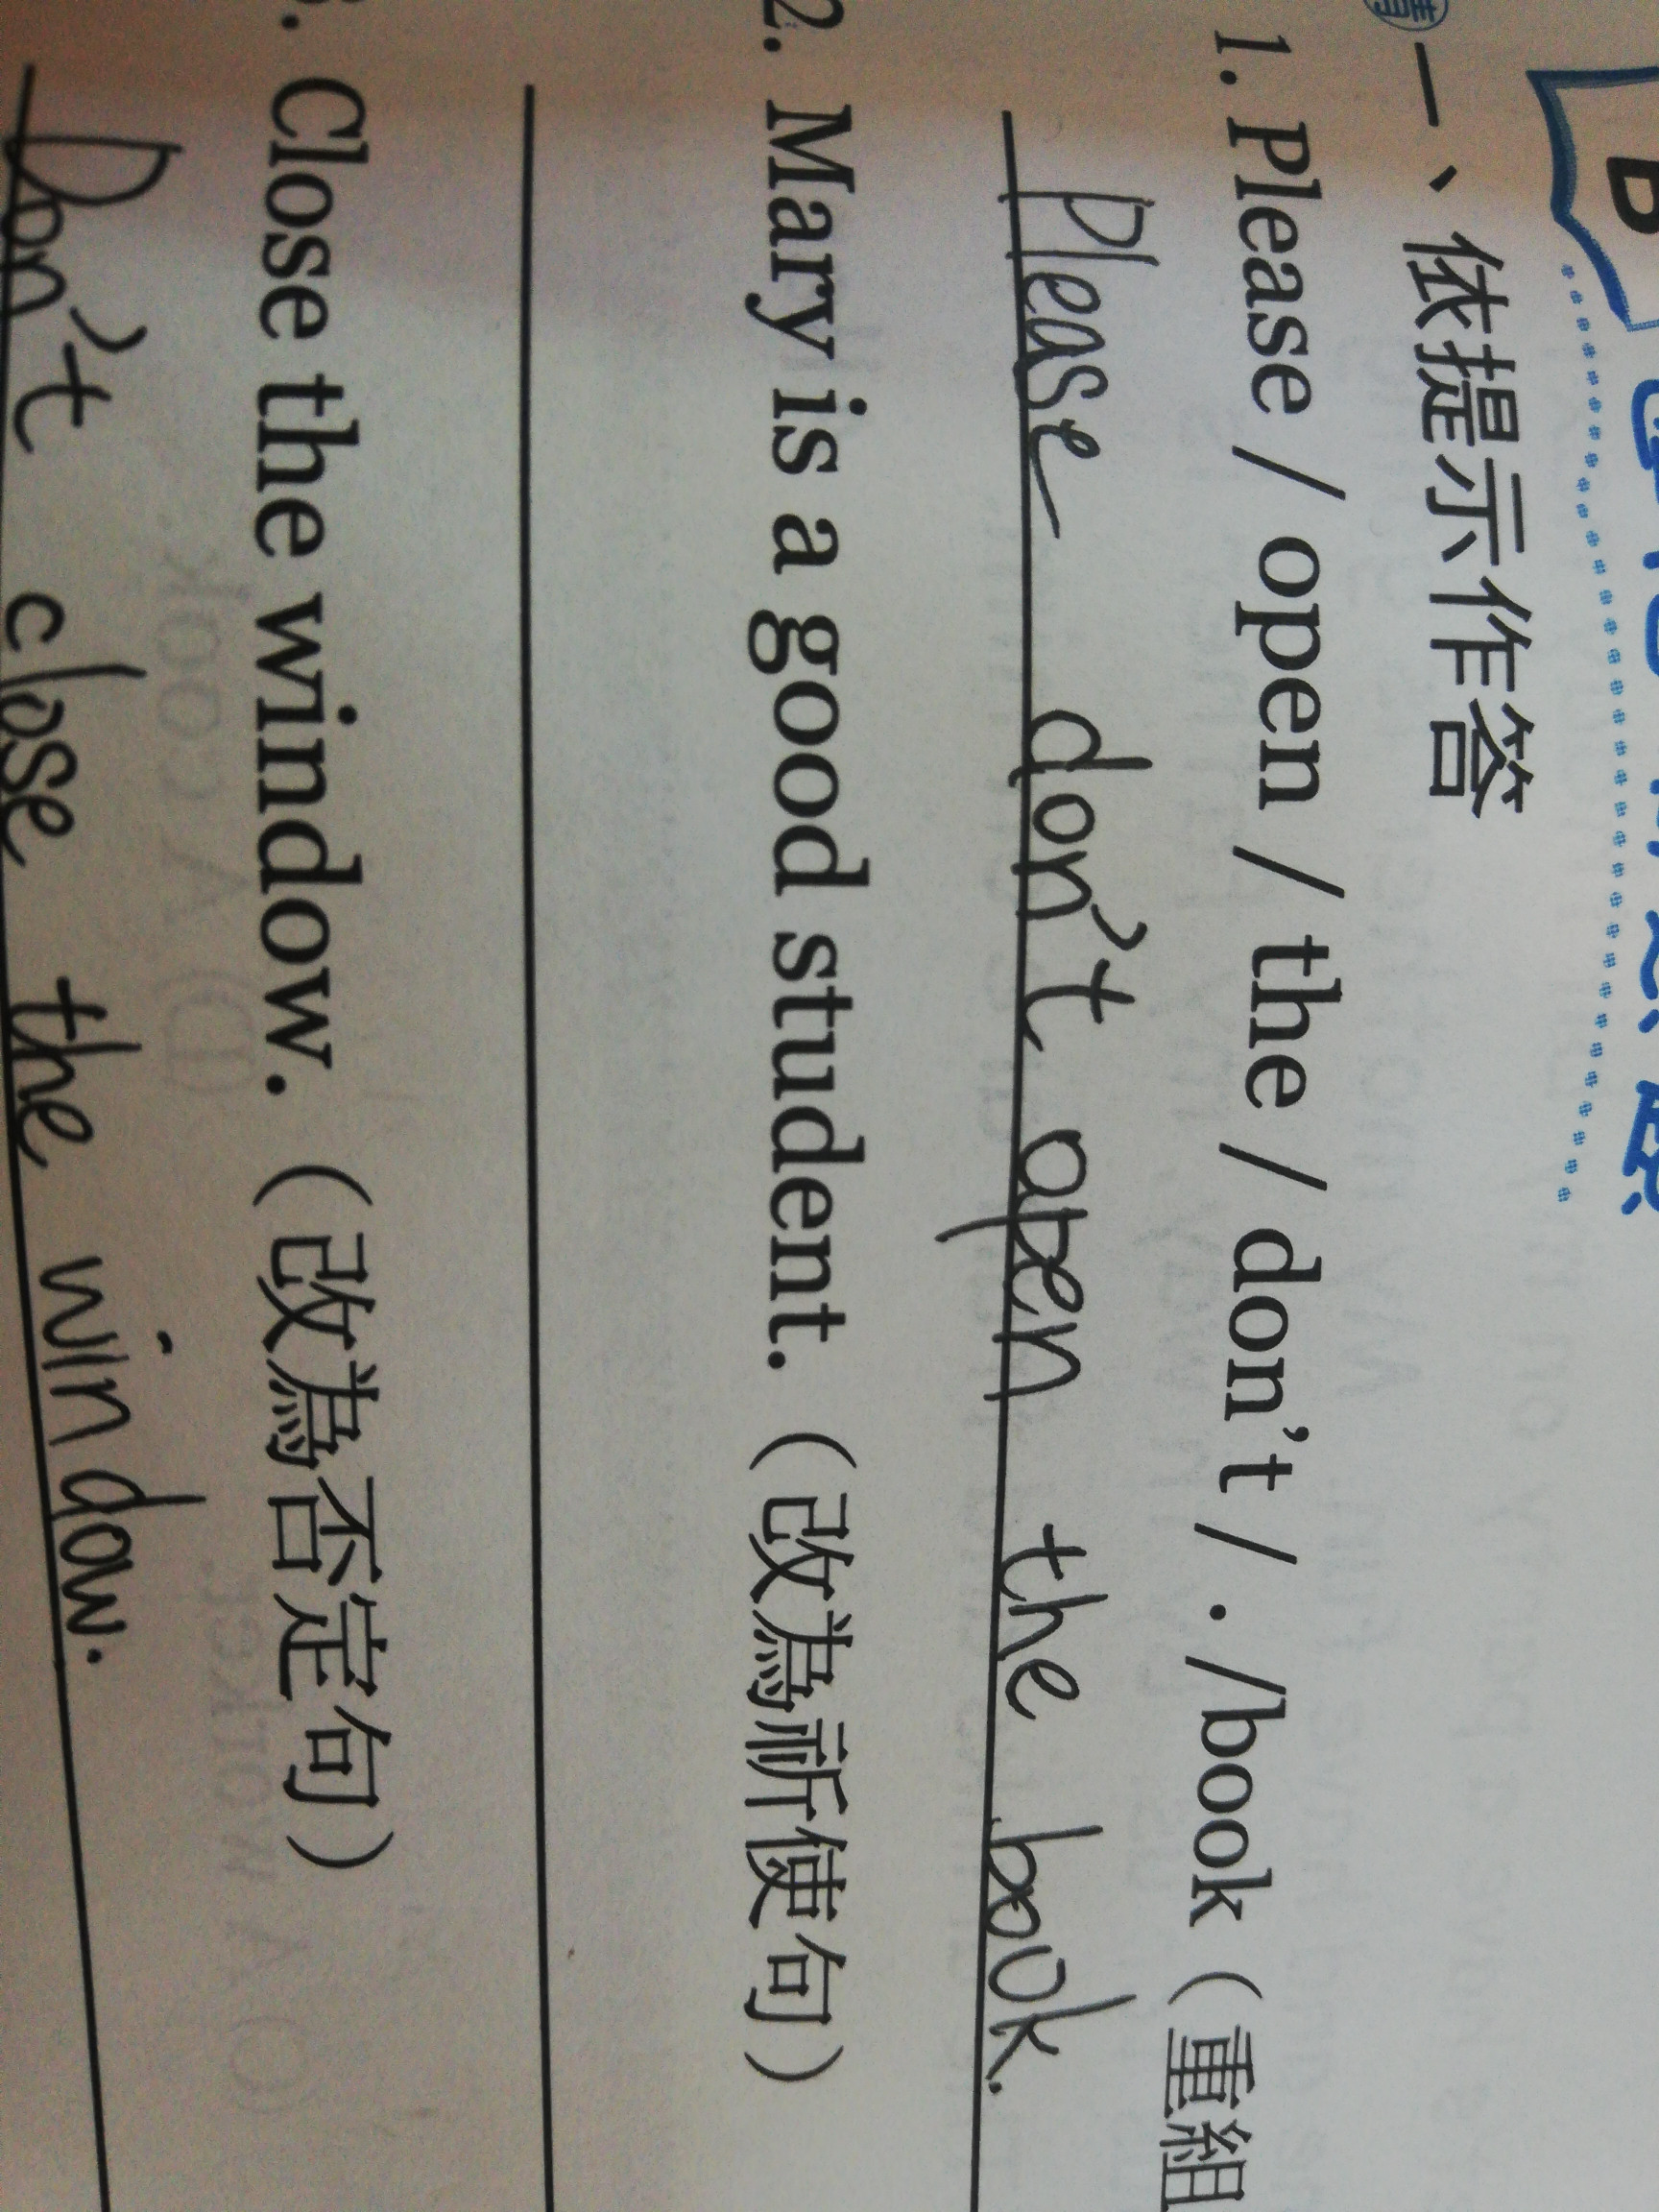 一、依提示作答
1. Please / open / the / don't / . /book（重組
Please don't open the book.
2. Mary is a good student.（改為祈使句）
Close the window.（改為否定句）
Don't close the window.